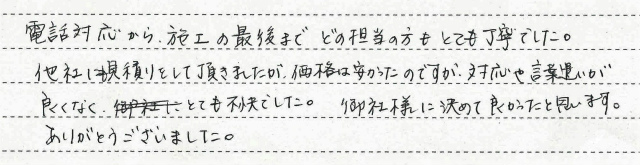 電話対応から、施工の最後まで どの担当の方も とても丁寧でした。
他社に見積りをして頂きましたが、価格は安かったのですが、対応や言葉遣いが
良くなく、とても不快でした。 御社様に決めて良かったと思います。
ありがとうございました。